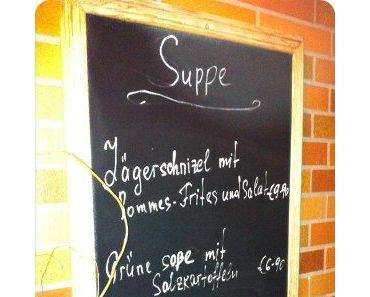 Suppe
Jägerschnizel mit
Pommes-Frites und Salat €9.90
Grüne soße mit
Salzkartoffeln €6.90